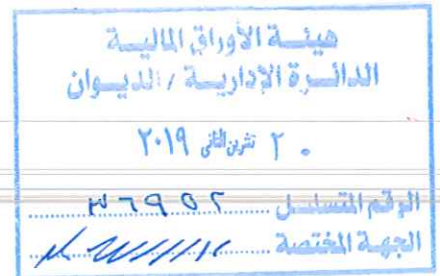 هيئة الأوراق المالية
الدائرة الإدارية / الديوان
٢٠ تشرين الثاني ٢٠١٩
الرقم المتسلسل ٣٦٩٥٢
الجهة المختصة